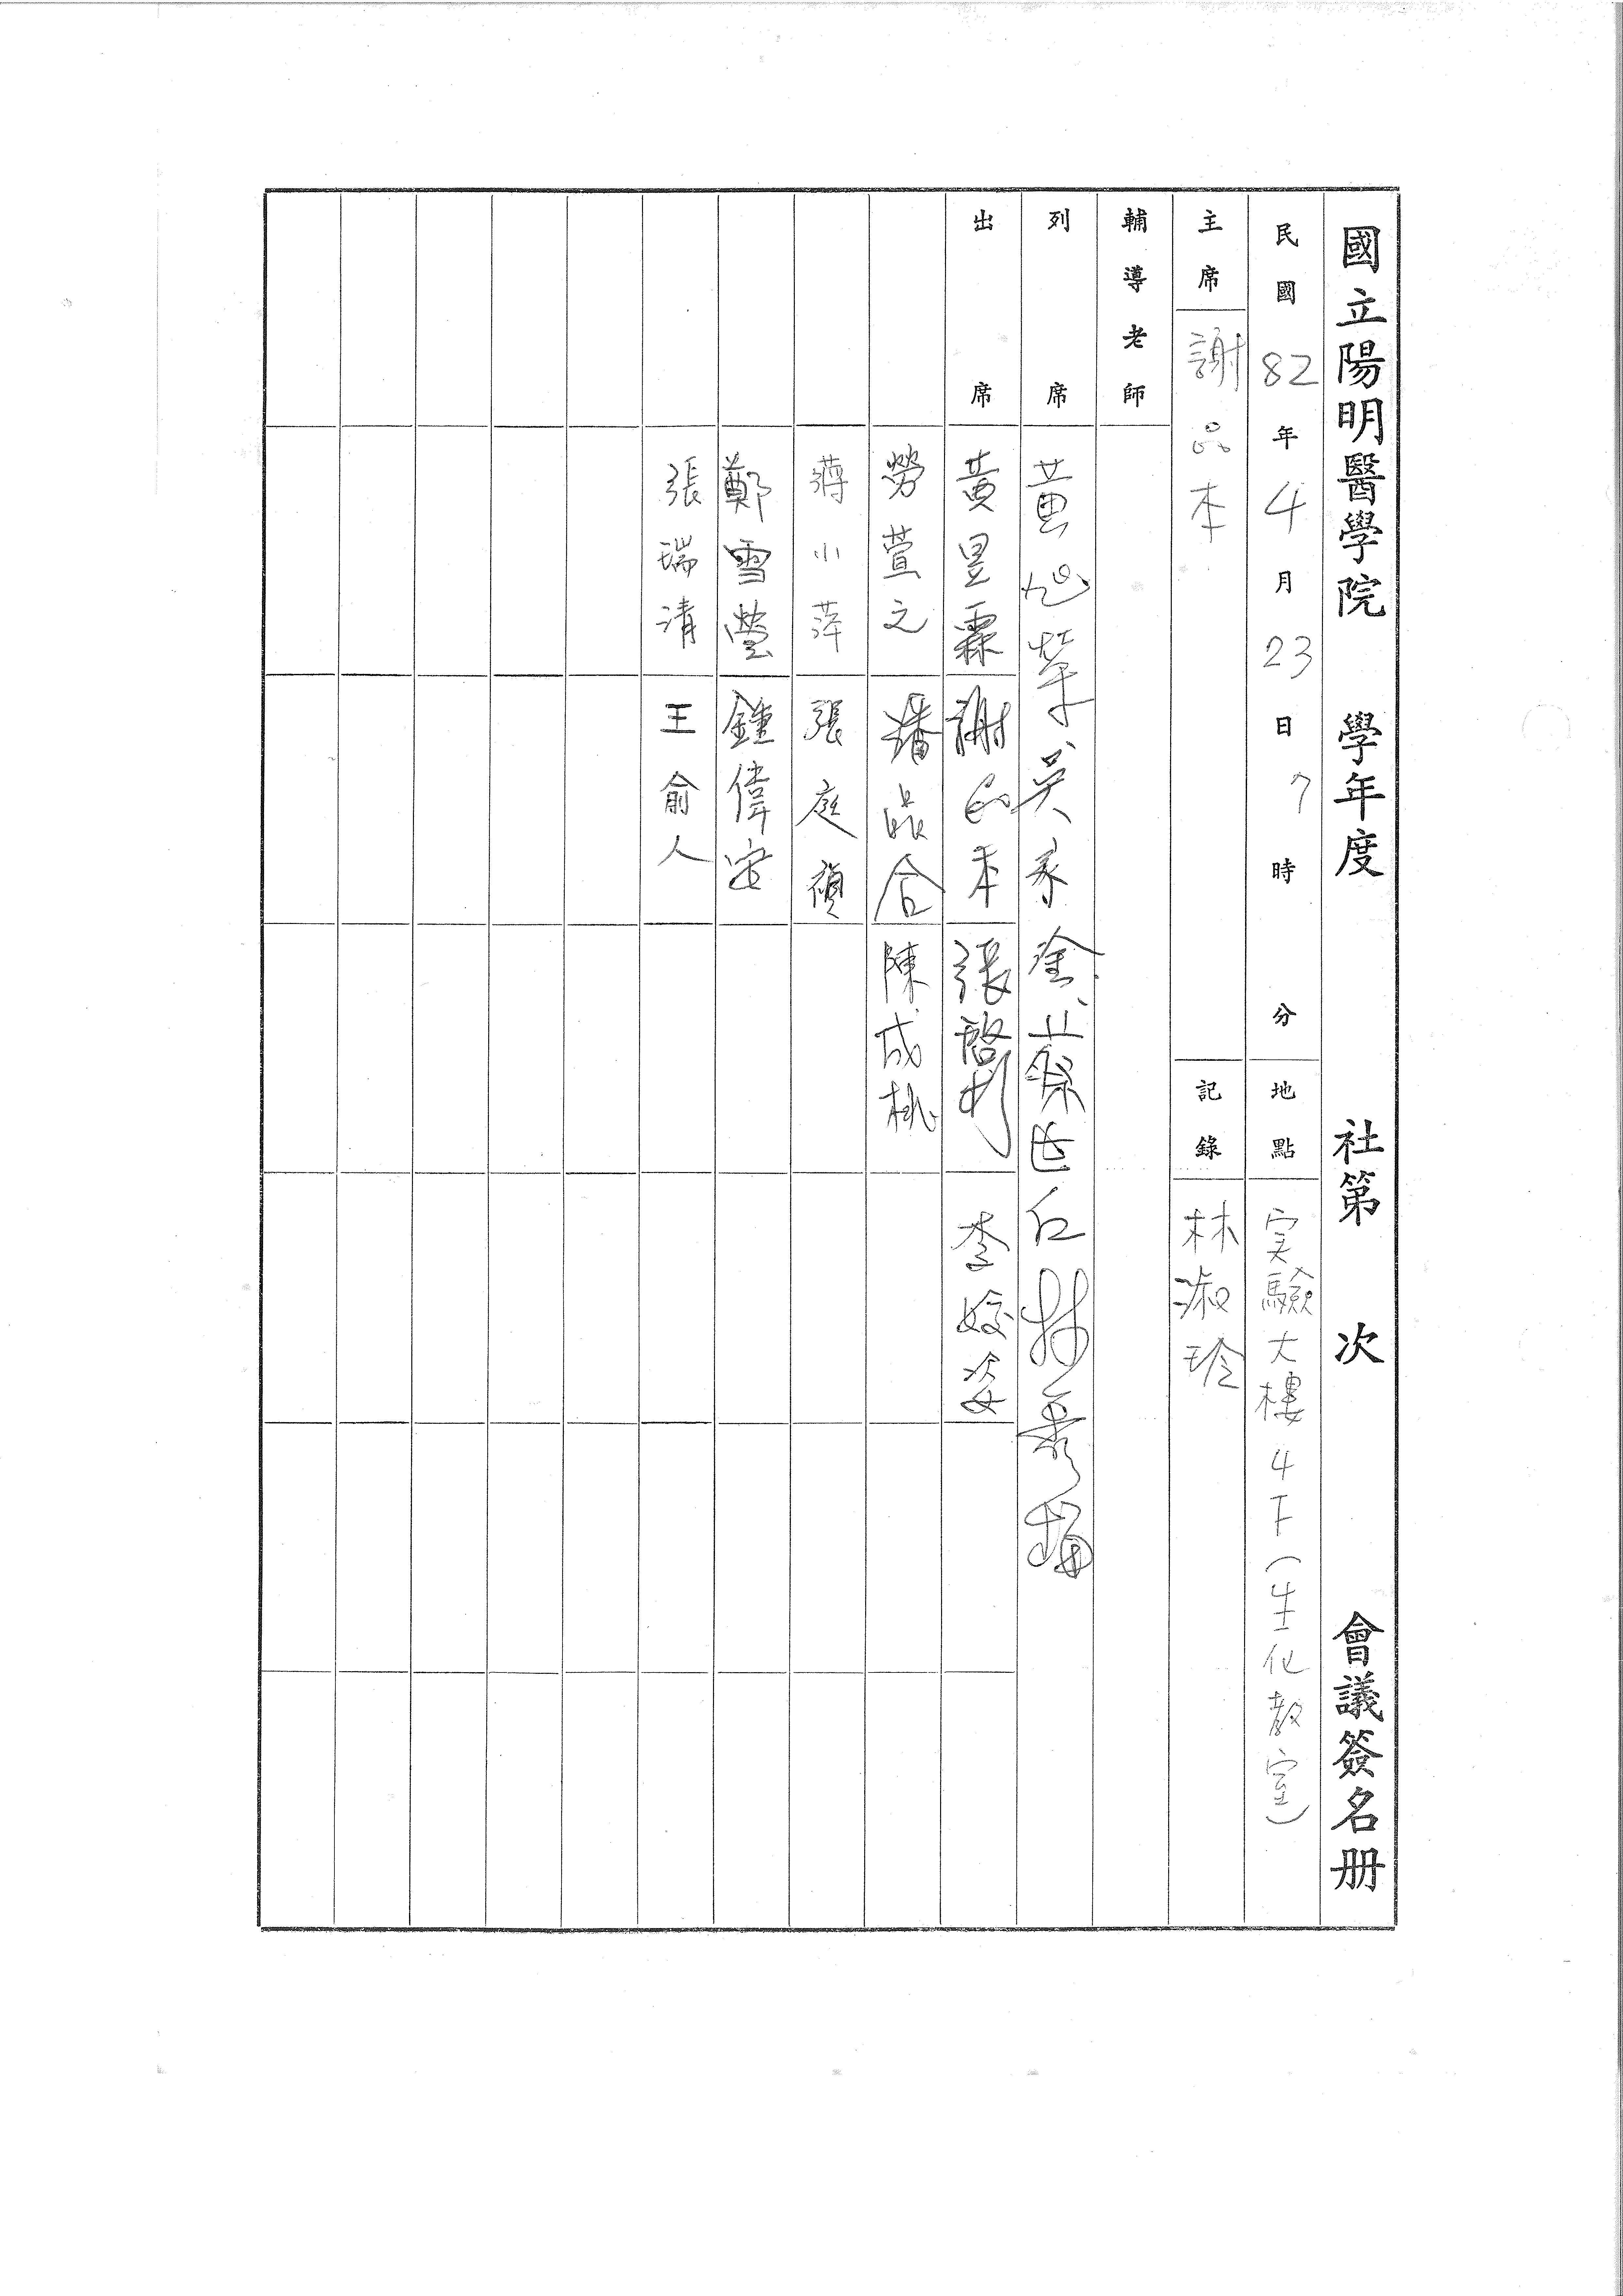 國立陽明醫學院 學年度 社第 次 會議簽名册
民國 82 年 4 月 23 日 7 時 分 地點 实驗大樓 4F (生化教室)
主席 謝品本 記錄 林淑玲
輔導老師
列席 黄旭華 吳豪 林秀梅
出席 黃昱霖 謝品本 張啓彬 李姣姿
勞萱之 潘品合 陳成桃
蔣小萍 張庭禎
鄭雪瑩 鍾偉安
張瑞清 王俞人